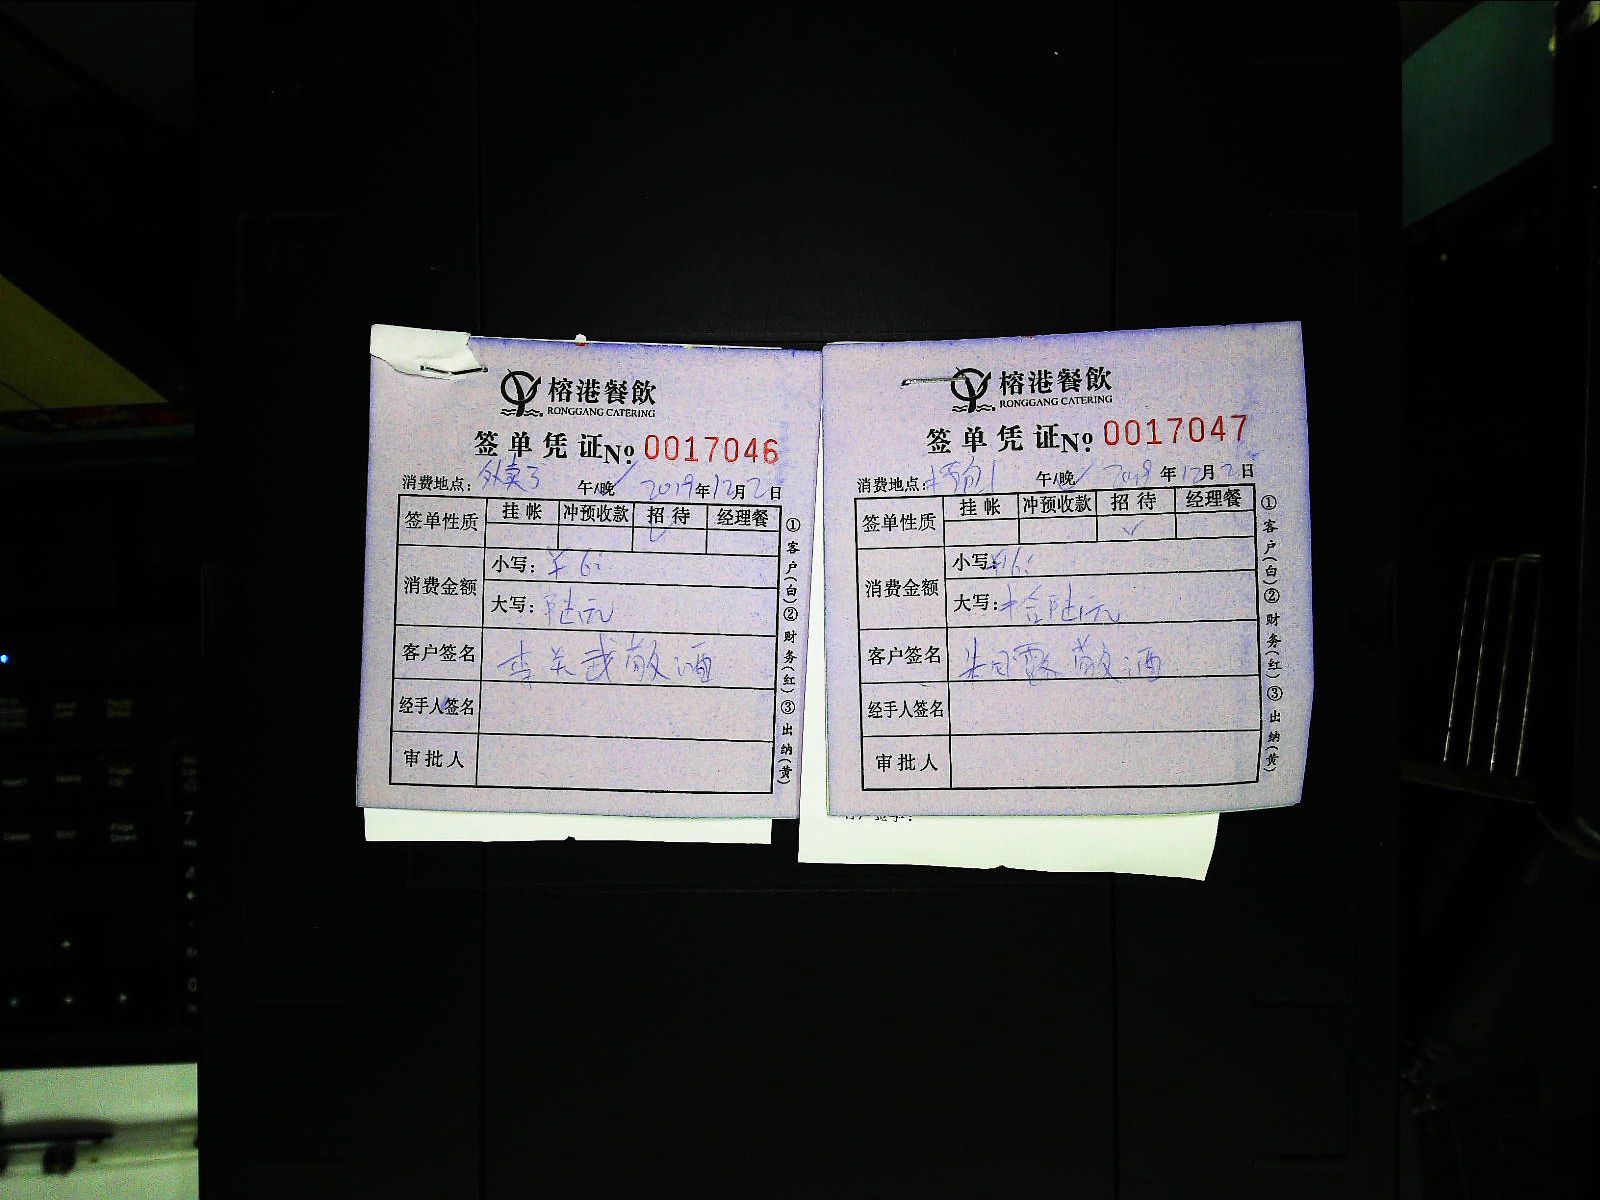 榕港餐飲
RONGGANG CATERING
签单凭证 No. 0017046
消费地点: 外卖3 午/晚 2019年12月2日
签单性质 挂帐 冲预收款 招待 经理餐
✓
消费金额 小写: ¥6:
大写: 陆元
客户签名 李关武敬酒
经手人签名
审批人
①客户(白)②财务(红)③出纳(黄)
榕港餐飲
RONGGANG CATERING
签单凭证 No. 0017047
消费地点: 午/晚 2019年12月2日
签单性质 挂帐 冲预收款 招待 经理餐
✓
消费金额 小写: ¥16:
大写: 拾陆元
客户签名 敬酒
经手人签名
审批人
①客户(白)②财务(红)③出纳(黄)